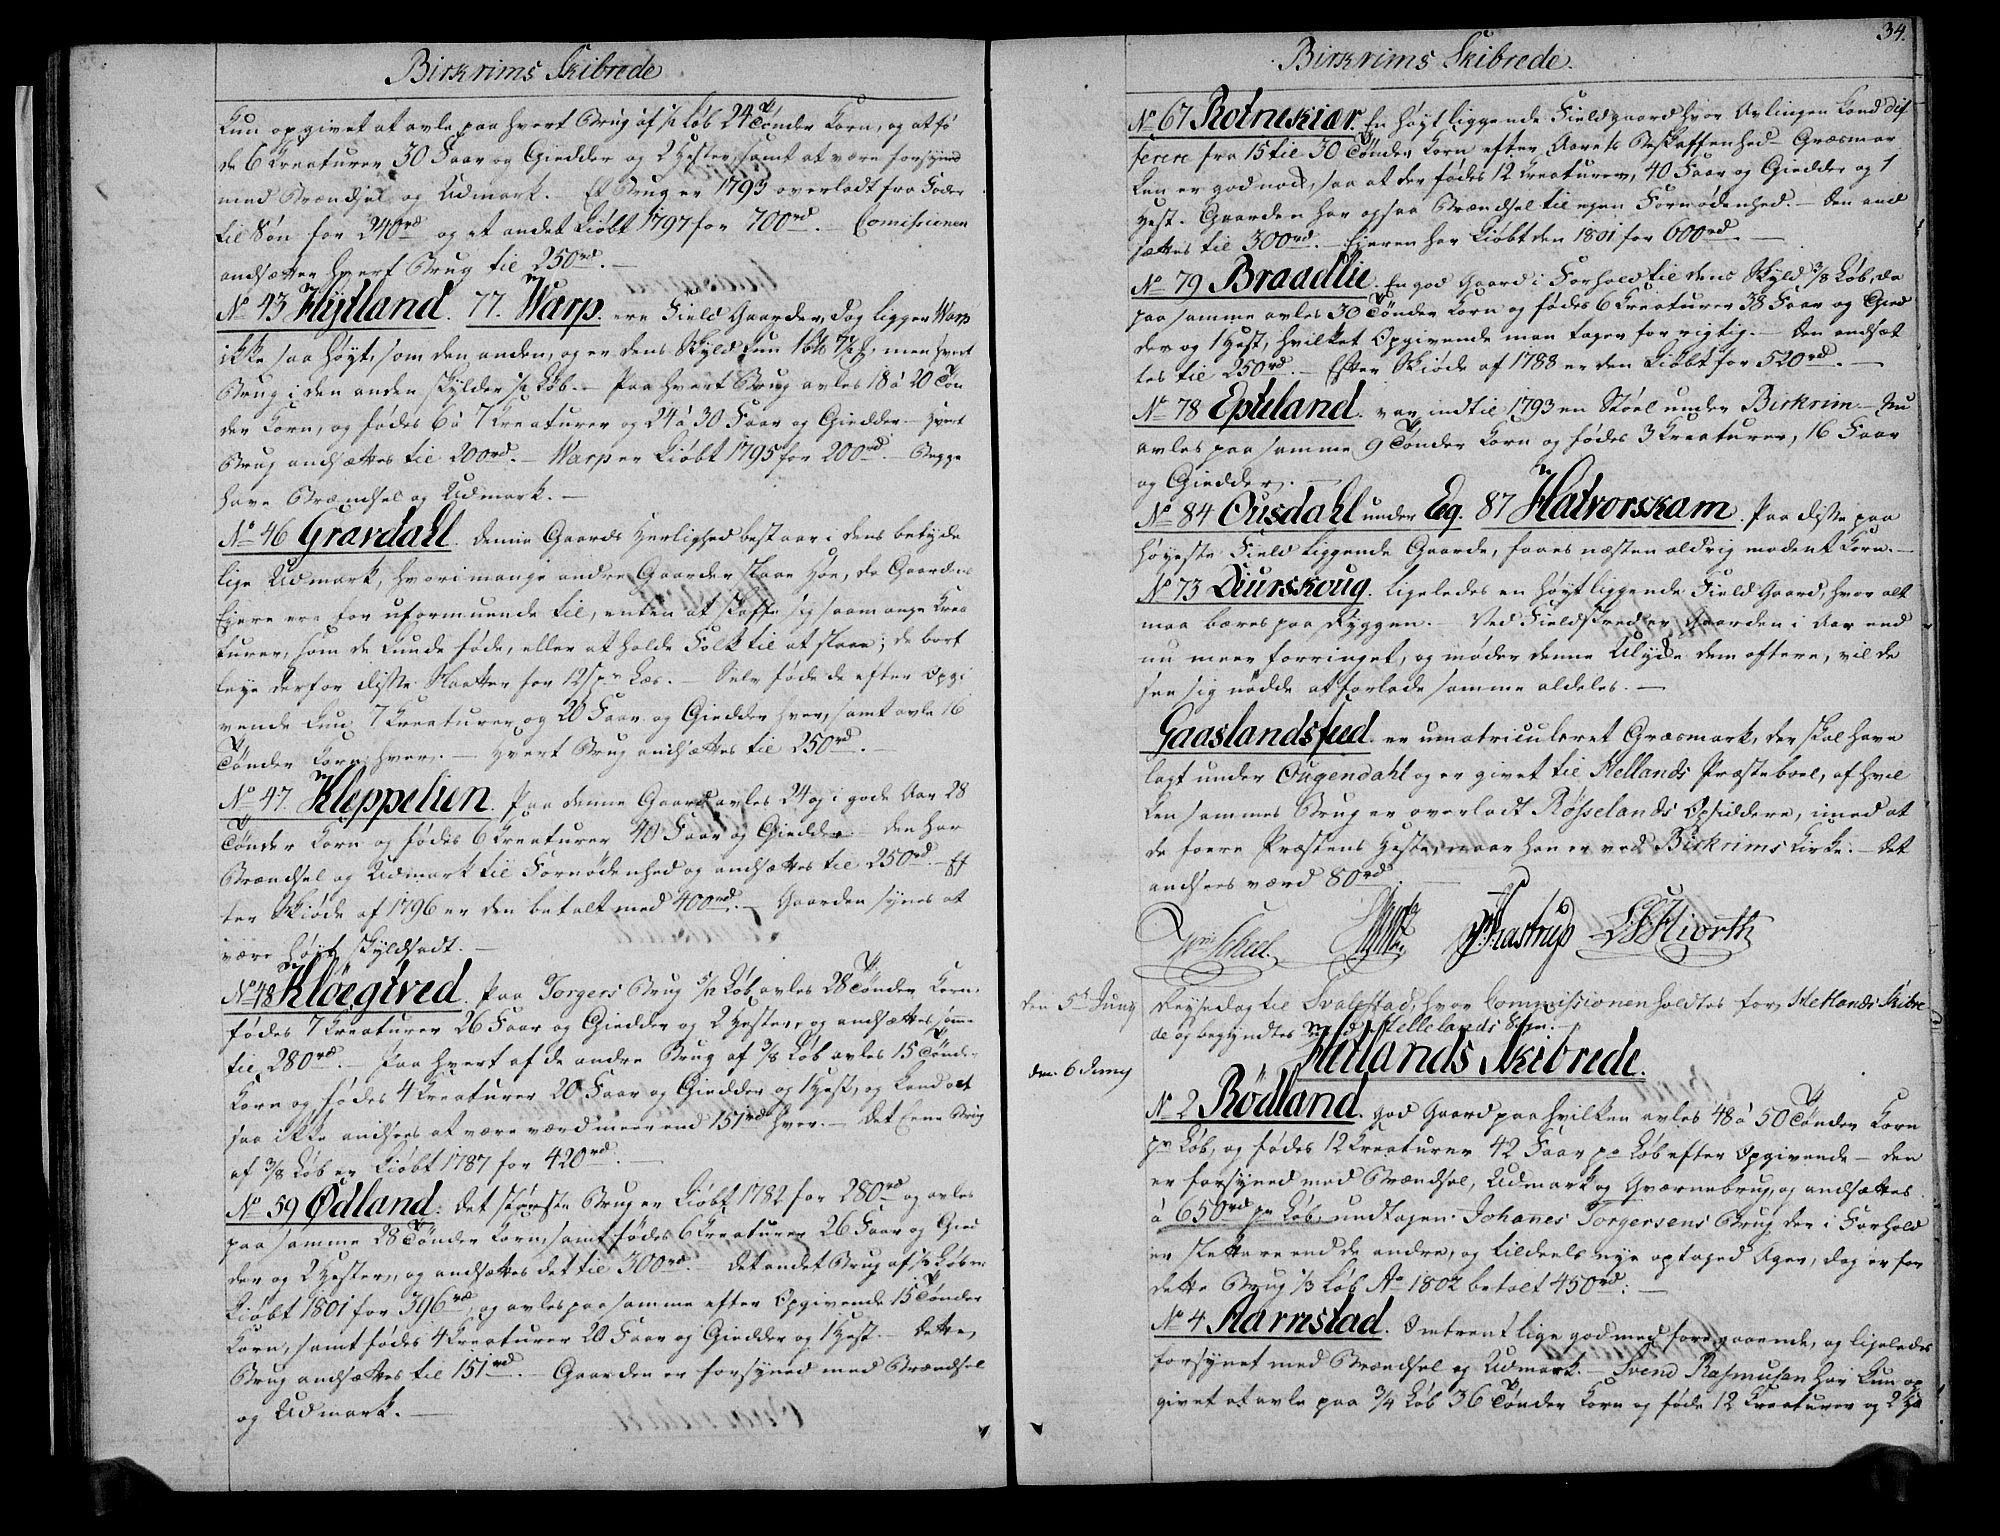 Birkrims Skibrede
kun opgivet at avle paa hvert Brug af ½ Løb 24 Tønder Korn, og at fø
de 6 Kreaturer 30 Faar og Giedder og 2 Hester, samt at være forsyned
med Brændsel og Udmark. — Et Brug er 1793 overladt fra Fader
til Søn for 240 rd og et andet kiøbt 1797 for 700 rd. — Comissionen
andsætter hvert Brug til 250 rd. —
No 43 Hytland. 77. Warp. ere Field Gaarder, dog ligger Warp
ikke saa høyt, som den anden, og er dens Skyld kun men hvert
Brug i den anden skylder ½ Løb. — Paa hvert Brug avles 18 à 20 Tøn
der Korn, og fødes 6 à 7 Kreaturer og 24 à 30 Faar og Giedder. — Hvert
Brug andsættes til 200 rd. — Warp er kiøbt 1795 for 200 rd. — Begge
have Brændsel og Udmark. —
No 46 Gravdahl. denne Gaards Herlighed bestaar i dens betyde
lige Udmark, hvori mange andre Gaarder slaae Høe, da Gaardens
Ejere ere for uformuende til, enten at skaffe sig saa mange Krea
turer, som de kunde føde, eller at holde Folk til at slaae; de bort
leye derfor disse Slaatter for 12 s pr Læs. — Selv føde de efter Opgi
vende kun 7 Kreaturer og 20 Faar og Giedder hver, samt avle 16
Tønder Korn hver. — Hvert Brug andsættes til 250 rd. —
No 47. Kleppelien. Paa denne Gaard avles 24 og i gode Aar 28
Tønder Korn og fødes 6 Kreaturer 40 Faar og Giedder — den har
Brændsel og Udmark til Fornødenhed og andsættes til 250 rd. — Ef
ter Skiøde af 1796 er den betalt med 400 rd. — Gaarden synes at
være høyt skyldsadt. —
No 48 Kløgtved. Paa Torgers Brug 5/12 Løb avles 28 Tønder Korn,
fødes 7 Kreaturer 26 Faar og Giedder og 2 Hester, og andsættes samme
til 280 rd. — Paa hvert af de andre Brug af 3/8 Løb avles 15 Tønder
Korn og fødes 4 Kreaturer 20 Faar og Giedder og 1 Hest, og kand alt
saa ikke andsees at være værd meer end 151 rd hver. — Det Eene Brug
af 3/8 Løb er kiøbt 1787 for 420 rd. —
No 59 Ødland. Det største Brug er kiøbt 1782 for 280 rd og avles
paa samme 28 Tønder Korn, samt fødes 6 Kreaturer 26 Faar og Gied
der og 2 Hester, og andsættes det til 300 rd. — Det andet Brug af ½ Løb er
kiøbt 1801 for 396 rd, og avles paa samme efter Opgivende 15 Tønder
Korn, samt fødes 4 Kreaturer 20 Faar og Giedder og 1 Hest. Dette
Brug andsættes til 151 rd. — Gaarden er forsyned med Brændsel
og Udmark. —
Birkrims Skibrede.
34.
No 67 Rotnekiær. En høyt liggende Fieldgaard hvor Avlingen kand dif
ferere fra 15 til 30 Tønder Korn efter Aarets Beskaffenhed — Græsmar
ken er god nok, saa at der fødes 12 Kreaturer, 40 Faar og Giedder og 1
Hest. Gaarden har ogsaa Brændsel til egen Fornødenhed. — Den and
sættes til 300 rd. — Ejeren har kiøbt den 1801 for 600 rd. —
No 79 Braadlie. En god Gaard i Forhold til dens Skyld 3/8 Løb, da
paa samme avles 30 Tønder Korn og fødes 6 Kreaturer 38 Faar og Gied
der og 1 Hest, hvilket Opgivende man tager for rigtig. — Den andsæt
tes til 250 rd. — Efter Skiøde af 1788 er den kiøbt for 520 rd. —
No 78 Epteland. var indtil 1793 en Støel under Birkrim — Nu
avles paa samme 9 Tønder Korn og fødes 3 Kreaturer, 16 Faar
og Giedder. —
No 84 Ousdahl under Eeg. 87 Hatvorskam. Paa disse paa
høyeste Field liggende Gaarde, faaes næsten aldrig modent Korn. —
No 73 Diurskoug. ligeledes en høyt liggende Field Gaard, hvor alt
maa bæres paa Ryggen. — Ved Fieldskred er Gaarden i Aar end
nu meer forringet, og møder denne Ulyde dem oftere, vil de
see sig nødde at forlade samme aldeles. —
Gaaslandsfeed. er umatriculeret Græsmark, der skal have
lagt under Ougendahl og er givet til Hellands Præsteboel, af hvil
ken sammes Brug er overladt Røsselands Opsiddere, imod at
de foere Præstens Heste, naar han er ved Birkrims Kirke. — Det
andsees værd 80 rd.
Scheel. Aastrup Hiorth
den 5te Juny Reysedag til Svalestad, hvor Commissionen holdtes for Hetlands Skibre
de og begyndtes med Hellelands Sogn. —
Hetlands Skibrede.
den 6 Juny
No 2 Rødland. god Gaard paa hvilken avles 48 à 50 Tønder Korn
pr Løb, og fødes 12 Kreaturer 42 Faar pr Løb efter Opgivende — den
er forsyned med Brændsel, Udmark og Qværnebrug, og andsættes
à 650 rd pr Løb, undtagen Johannes Torgersens Brug der i Forhold
er slettere end de andre, og tildeels nye optaged Ager, dog er for
dette Brug 1/3 Løb Ao 1802 betalt 450 rd. —
No 4 Aarrestad. Omtrent lige god med foregaaende, og ligeledes
forsynet med Brændsel og Udmark. — Svend Rasmusen har kun op
givet at avle paa 3/4 Løb 36 Tønder Korn og føde 12 Kreaturer og 2 He